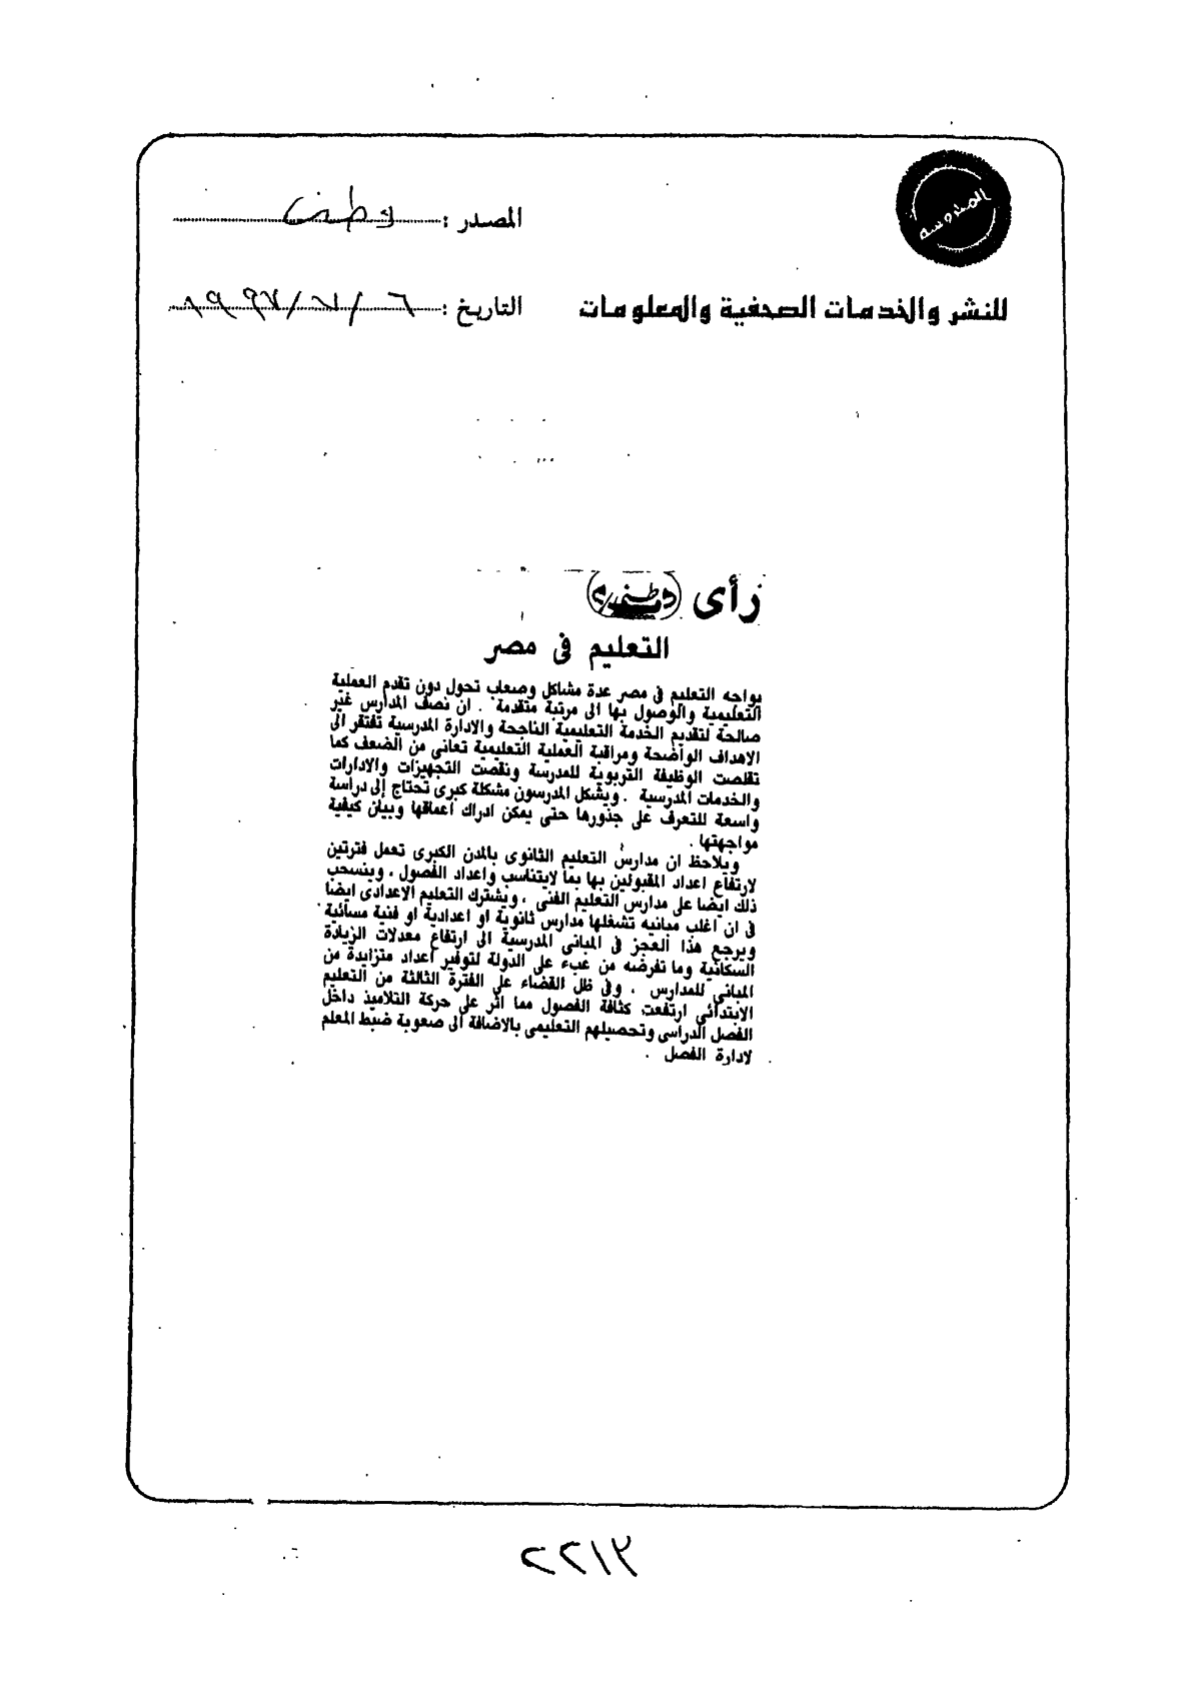 المحروسة
المصدر : وطنى
للنشر والخدمات الصحفية والمعلومات
التاريخ : ٦ / ٧ / ١٩٩٧
رأى وطنى
التعليم فى مصر
يواجه التعليم فى مصر عدة مشاكل وصعاب تحول دون تقدم العملية
التعليمية والوصول بها الى مرتبة متقدمة . ان نصف المدارس غير
صالحة لتقديم الخدمة التعليمية الناجحة والادارة المدرسية تفتقر الى
الاهداف الواضحة ومراقبة العملية التعليمية تعانى من الضعف كما
تقلصت الوظيفة التربوية للمدرسة ونقصت التجهيزات والادارات
والخدمات المدرسية . ويشكل المدرسون مشكلة كبرى تحتاج إلى دراسة
واسعة للتعرف على جذورها حتى يمكن ادراك اعماقها وبيان كيفية
مواجهتها .
ويلاحظ ان مدارس التعليم الثانوى بالمدن الكبرى تعمل فترتين
لارتفاع اعداد المقبولين بها بما لايتناسب واعداد الفصول ، وينسحب
ذلك ايضا على مدارس التعليم الفنى ، ويشترك التعليم الاعدادى ايضا
فى ان اغلب مبانيه تشغلها مدارس ثانوية او اعدادية او فنية مسائية .
ويرجع هذا العجز فى المبانى المدرسية الى ارتفاع معدلات الزيادة
السكانية وما تفرضه من عبء على الدولة لتوفير اعداد متزايدة من
المبانى للمدارس ، وفى ظل القضاء على الفترة الثالثة من التعليم
الابتدائى ارتفعت كثافة الفصول مما اثر على حركة التلاميذ داخل
الفصل الدراسى وتحصيلهم التعليمى بالاضافة الى صعوبة ضبط المعلم
لادارة الفصل .
٢٢١٣